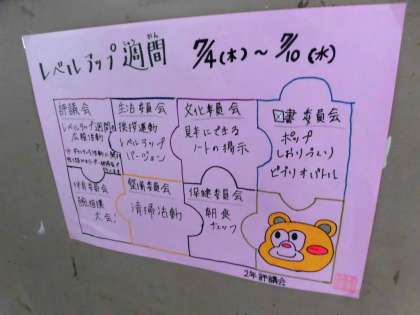 レベルアップ週間 7/4(木)~7/10(水)
しゅうかん
評議会
レベルアップ週間
広報活動
生活委員会
挨拶運動
レベルアップ
バージョン
文化委員会
見本にできる
ノートの掲示
図書委員会
ポップ
しおりづくり
ビブリオバトル
体育委員会
腕相撲
大会!
整備委員会
清掃活動
保健委員会
朝食
チェック
2年評議会